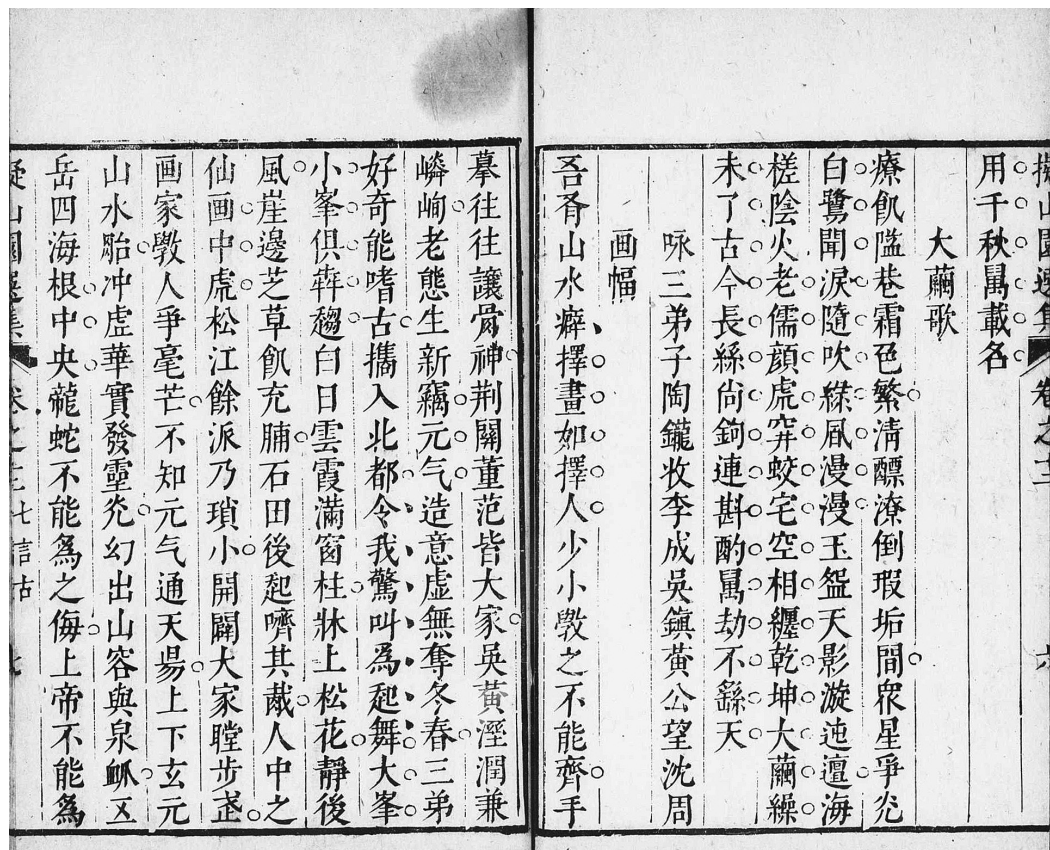 擬山園選集 卷之十三 六
用千秋萬載名
大繭歌
療飢隘巷霜色繁清醥潦倒瑕垢間眾星爭光
白鷺聞淚隨吹緱凨漫漫玉盌天影漩迍邅海
槎陰火老儒顔虎穽蛟宅空相纏乾坤大繭繰
未了古今長絲尚鉤連斟酌萬劫不繇天
咏三弟子陶鑨收李成吳鎮黃公望沈周
画幅
吾脊山水癖擇畫如擇人少小斆之不能齊手
摹往往讓骨神荆關董范皆大家吳黃溼潤兼
嶙峋老態生新竊元气造意虚無奪冬春三弟
好奇能嗜古攜入北都令我驚叫爲起舞大峯
小峯俱犇趨白日雲霞滿窗柱牀上松花靜後
風崖邊芝草飢充脯石田後起嚌其胾人中之
仙画中虎松江餘派乃瑣小開闢大家瞠步武
画家斆人爭毫芒不知元气通天昜上下玄元
山水貽冲虗華實發靈光幻出山容與泉衇五
岳四海根中央龍蛇不能爲之侮上帝不能爲
擬山園選集 卷之十三 七言古 七